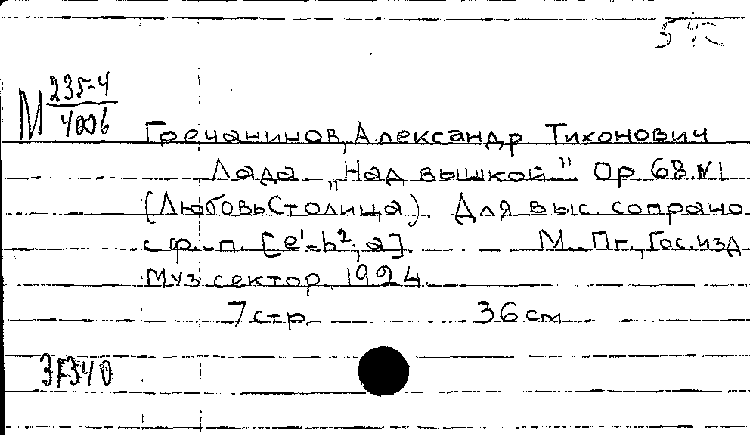 М 235-4
4006
Гречанинов, Александр Тихонович
Лада. „Над вышкой" Ор. 68. №1
(Любовь Столица). Для выс. сопрано
с ф.-п. [e¹-h²; a]. М.-Пг., Гос. изд
Муз. сектор, 1924.
7 стр. 36 см
37340